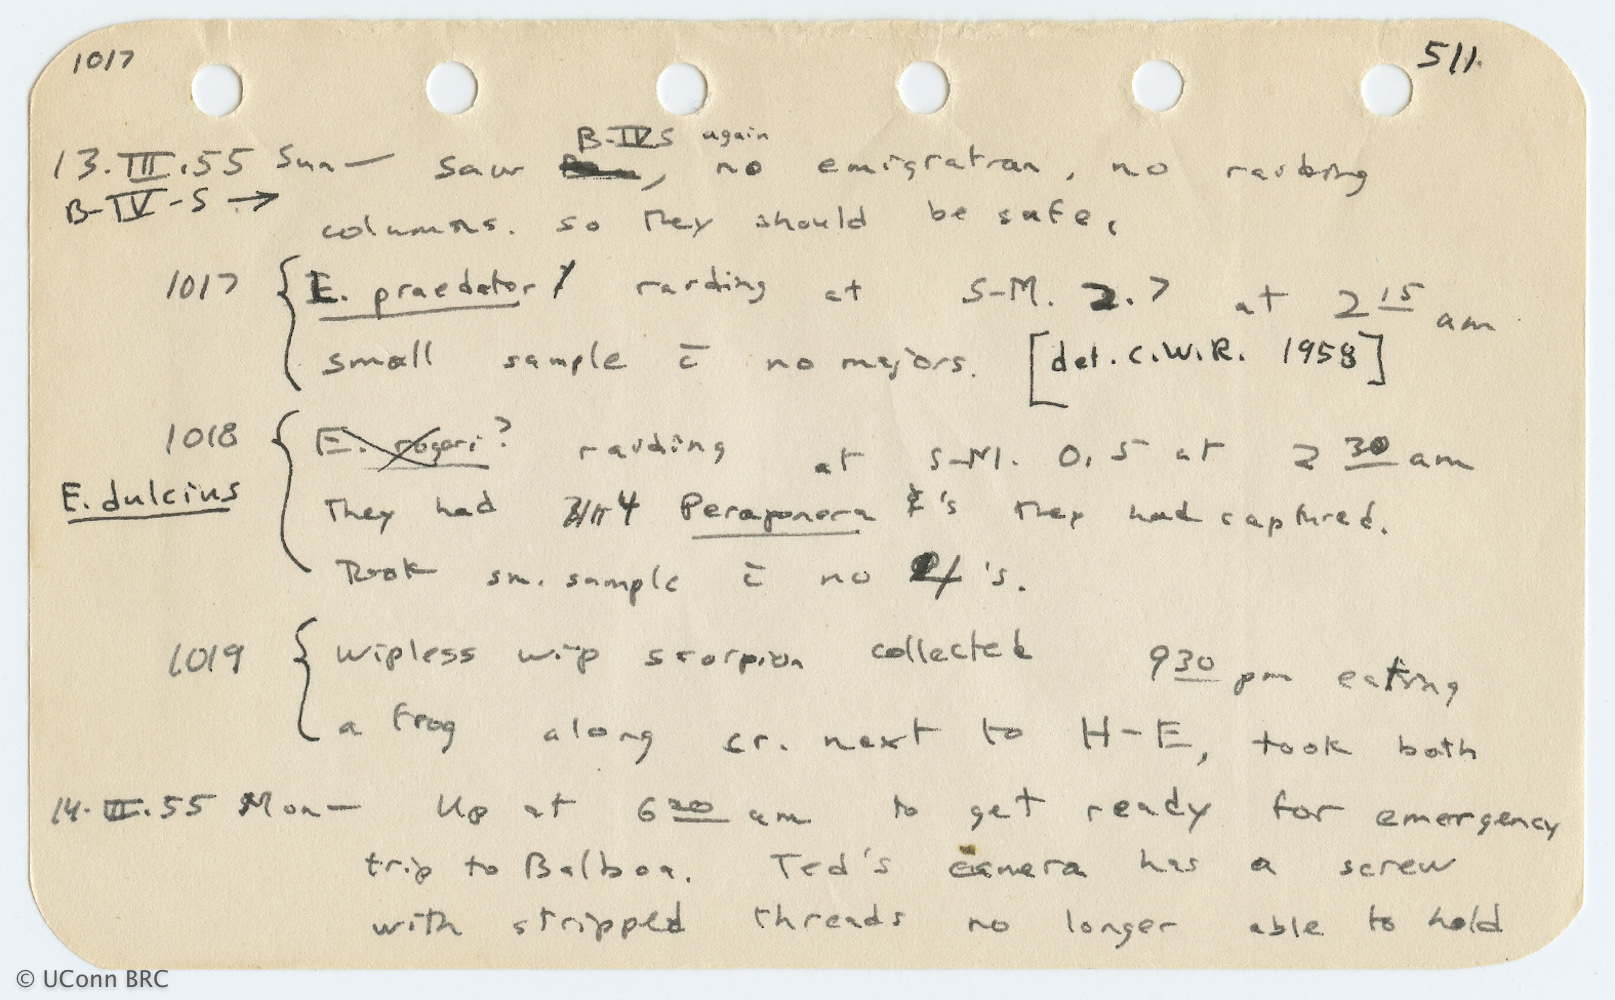 1017
511.
B-IVS again
13.III.55 Sun— saw , no emigration, no raiding
B-IV-S →
columns. so they should be safe.
1017 { E. praedator raiding at S-M. 2.7 at 2 15 am
small sample c̄ no majors. [det. C.W.R. 1958]
1018 { E. rogeri? raiding at S-M. 0.5 at 2 30 am
E. dulcius
They had 4 Peraponera 's they had captured.
Took sm. sample c̄ no 's.
1019 { wipless wip scorpion collected 9 30 pm eating
a frog along cr. next to H-E, took both
14.III.55 Mon— Up at 6 20 am to get ready for emergency
trip to Balboa. Ted's camera has a screw
with stripped threads no longer able to hold
© UConn BRC